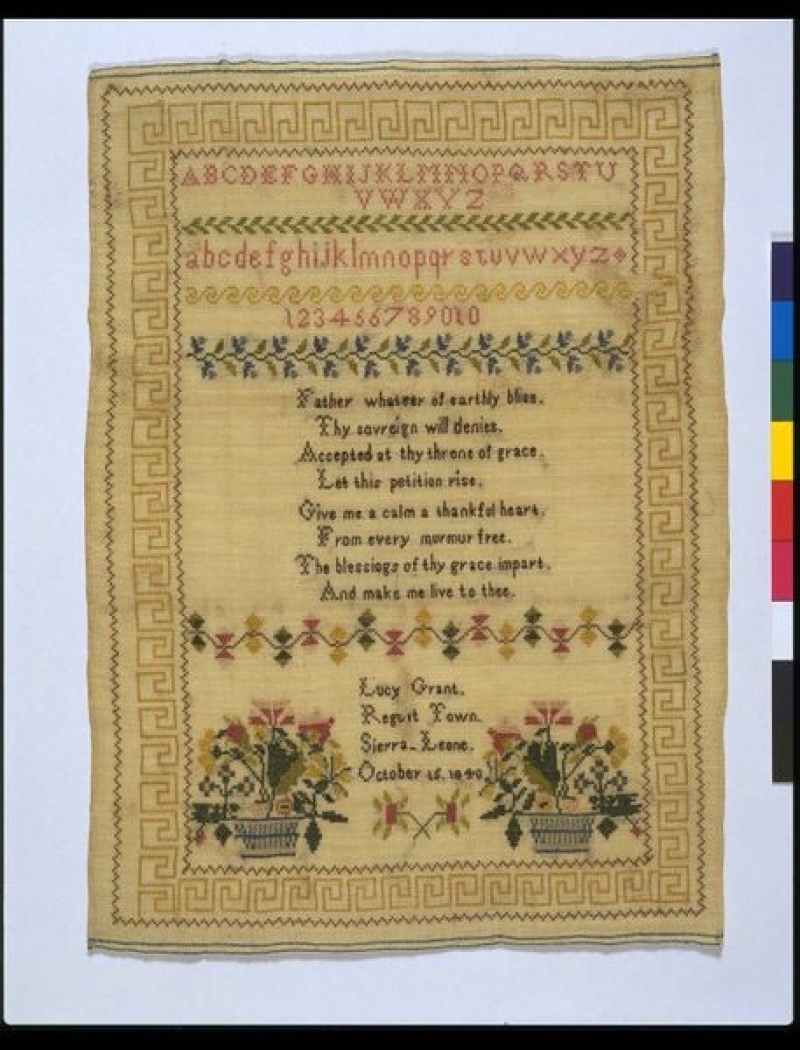 ABCDEFGHIJKLMNOPQRSTU
VWXYZ
abcdefghijklmnopqrstuvwxyz
12345678901 0
Father whateer of earthly bliss.
Thy sovreign will denies.
Accepted at thy throne of grace.
Let this petition rise.
Give me a calm a thankful heart.
From every murmur free.
The blessings of thy grace impart.
And make me live to thee.
Lucy Grant.
Regent Town.
Sierra-Leone.
October 15. 1840.